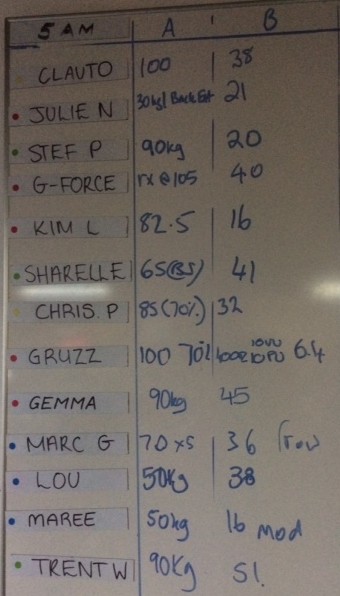 5 AM A B
CLAUTO 100 38
JULIE N 30kg/ Back Ext 21
STEF P 90kg 20
G-FORCE rx @105 40
KIM L 82.5 16
SHARELLE 65(BS) 41
CHRIS. P 85(70%) 32
GRUZZ 100 70% 400R 10VU 10PU 6.4
GEMMA 90kg 45
MARC G 70 x5 36 row
LOU 50kg 38
MAREE 50kg 16 mod
TRENT W 90kg 51.